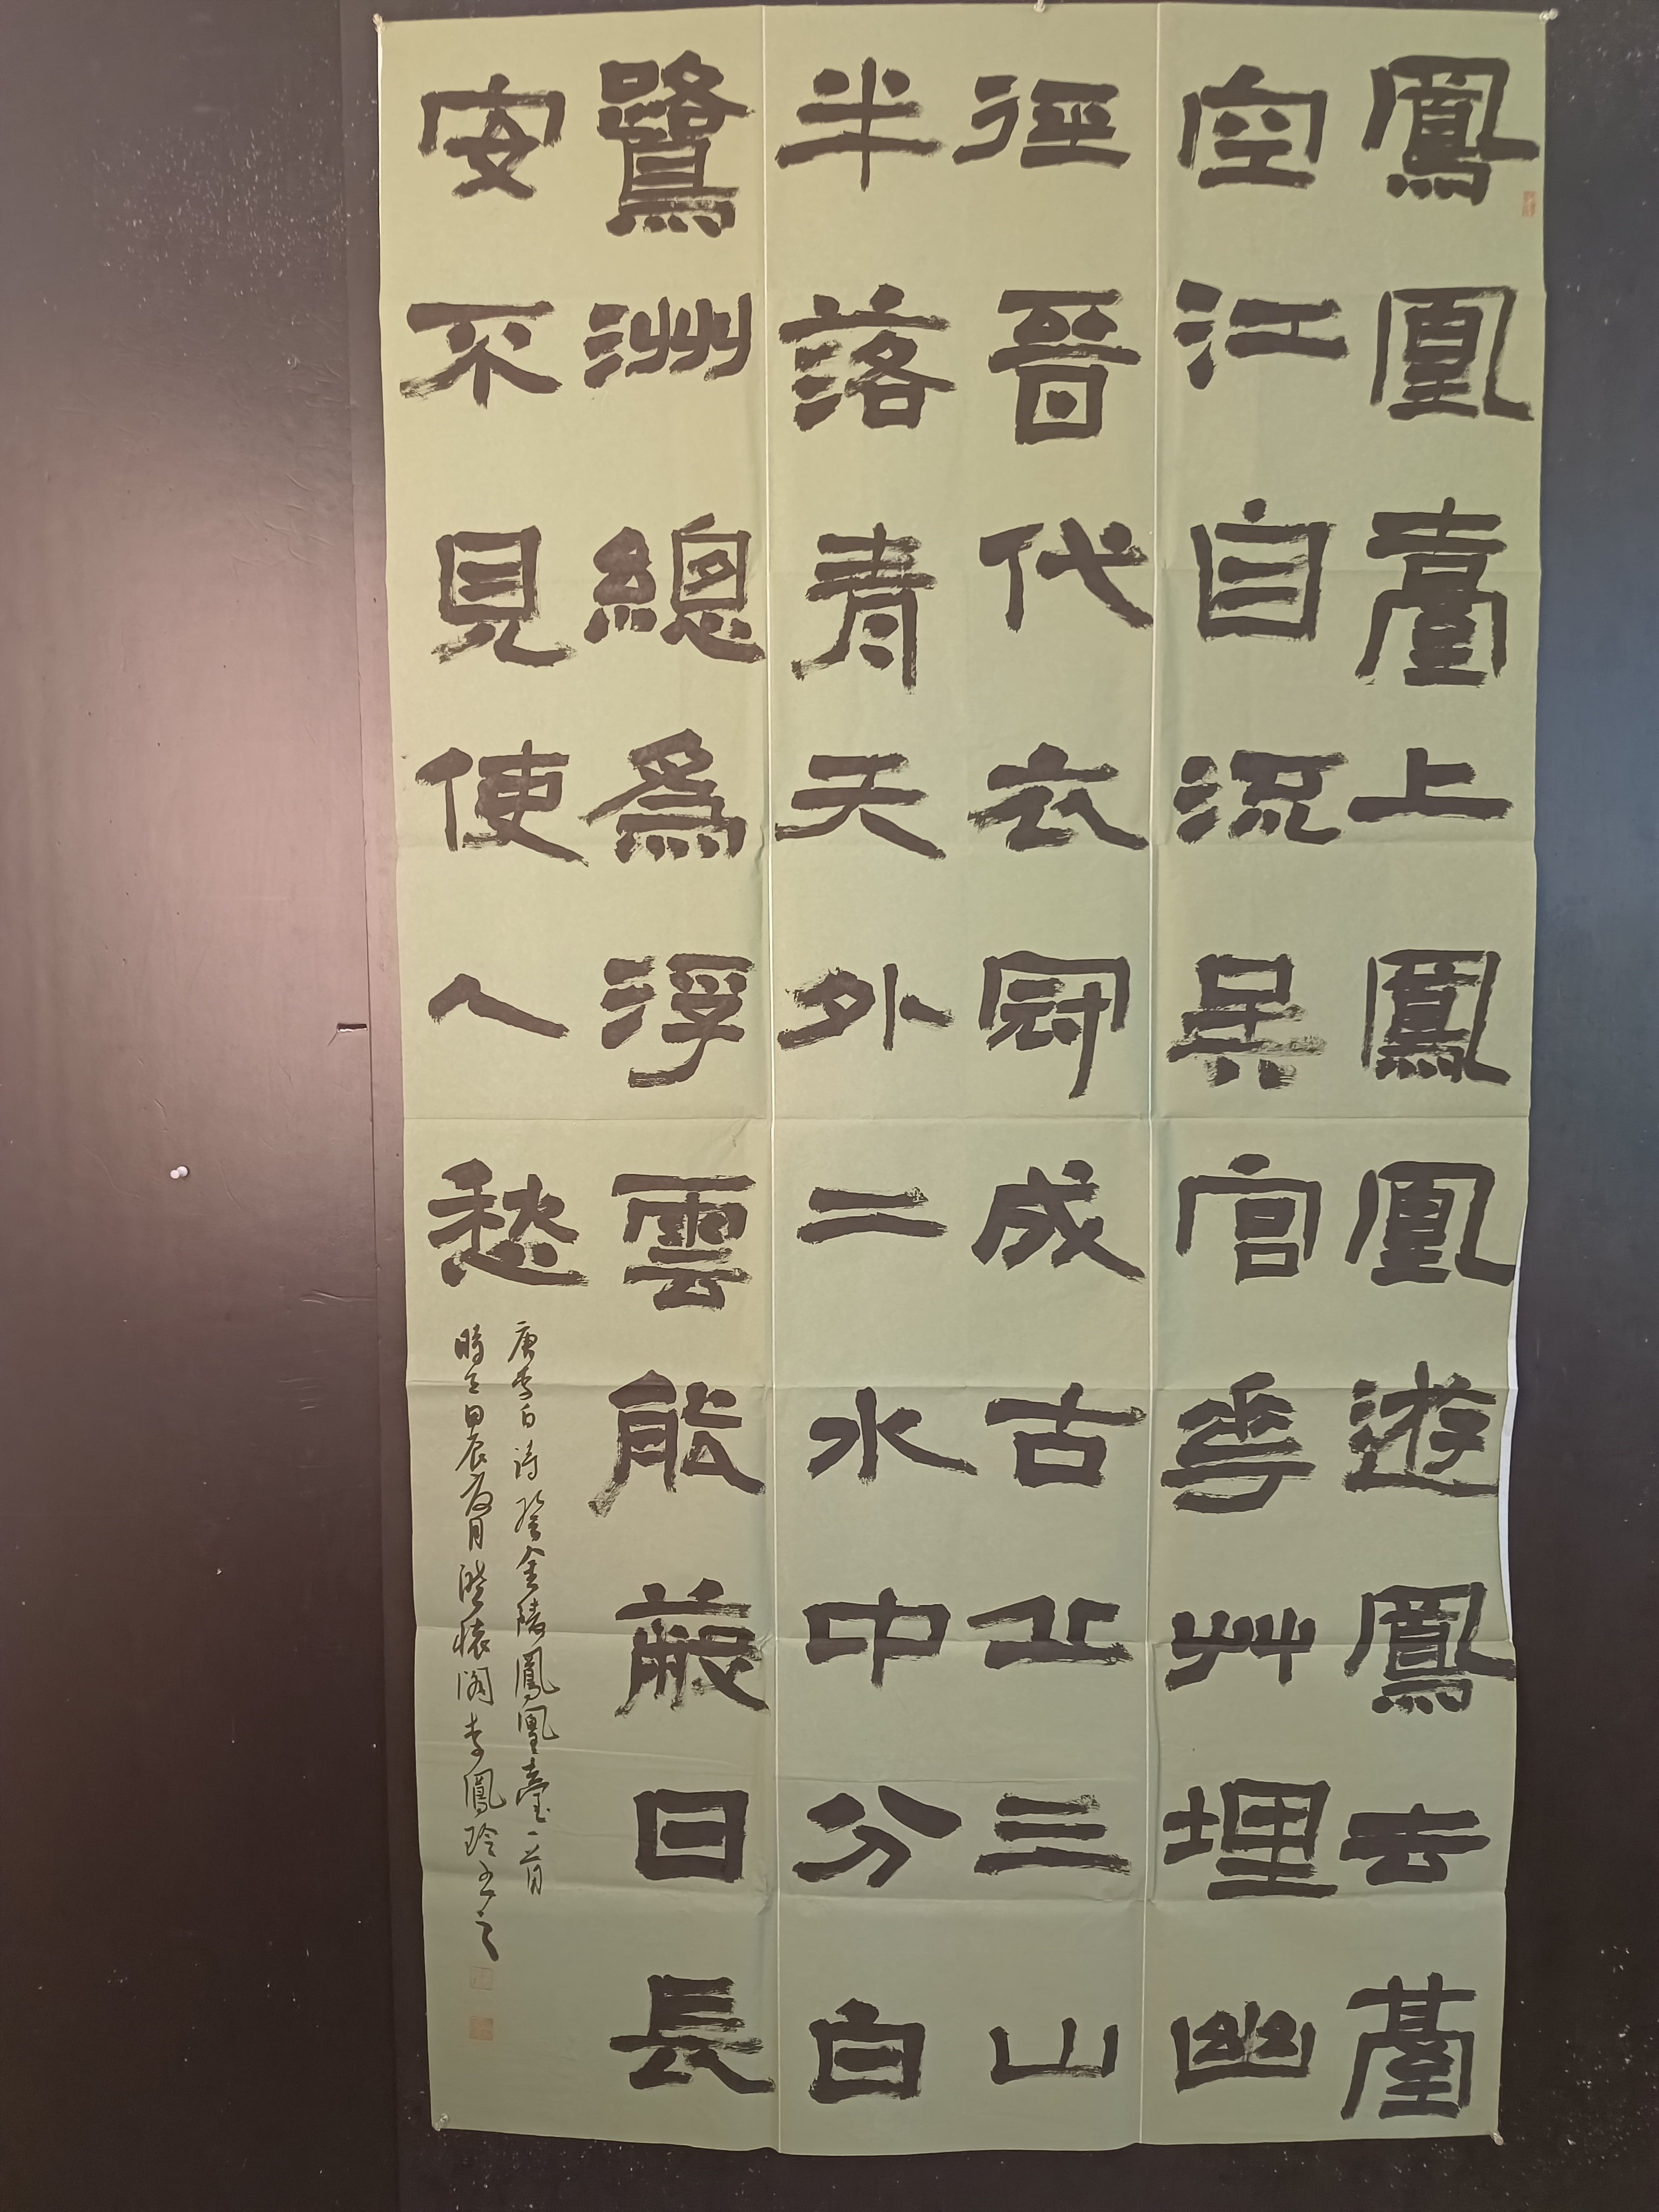 鳳凰臺上鳳凰遊鳳去臺
空江自流吳宮花艸埋幽
徑晉代衣冠成古丘三山
半落青天外二水中分白
鷺洲總為浮雲能蔽日長
安不見使人愁
唐李白詩登金陵鳳凰臺一首
時在甲辰夏月 懷閣李鳳玲書之